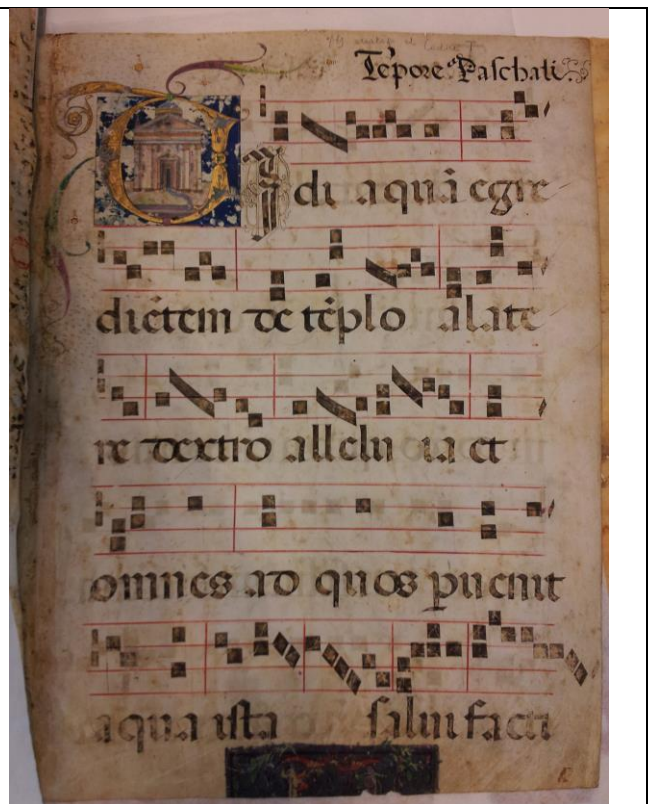 Tẽpore Paschali.
Vidi aquã egre
diẽtem de tẽplo a late
re dextro allelu ia et
omnes ad quos puenit
aqua ista salui facti